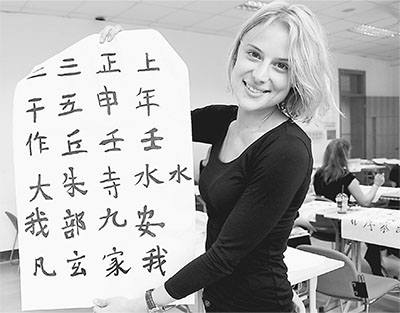 二 三 正 上
干 五 申 年
作 丘 壬 壬
大 朱 寺 水 水
我 部 九 安
凡 玄 家 我